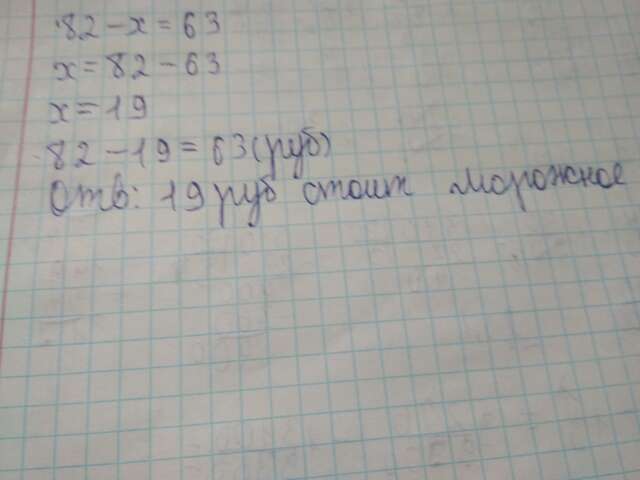 82 - x = 63
x = 82 - 63
x = 19
82 - 19 = 63 (руб)
Отв: 19 руб стоит морожное